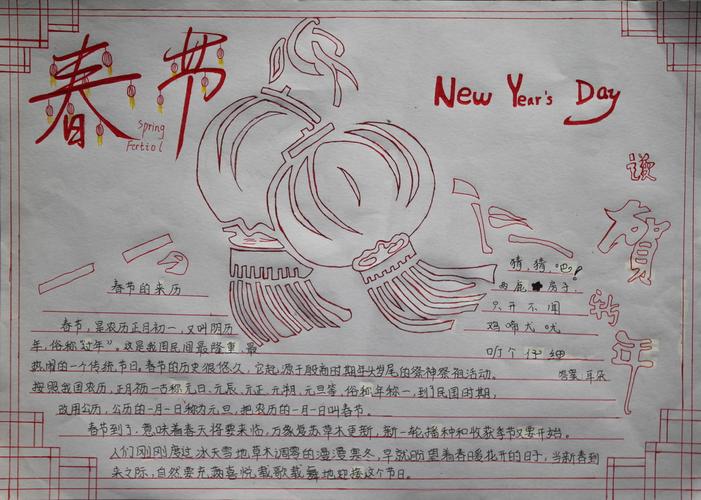 春节
Spring
Fertiol
New Year's Day
谨
贺
新
年
春节的来历
春节,是农历正月初一,又叫阴历
年,俗称"过年"。这是我国民间最隆重、最
热闹的一个传统节日。春节的历史很悠久,它起源于殷商时期年头岁尾的祭神祭祖活动。
按照我国农历,正月初一古称元日、元辰、元正、元朔、元旦等,俗称年初一,到了民国时期,
改用公历,公历的一月一日称为元旦,把农历的一月一日叫春节。
春节到了,意味着春天将要来临,万象复苏草木更新,新一轮播种和收获季节又要开始。
人们刚刚度过冰天雪地草木凋零的漫漫寒冬,早就盼望着春暖花开的日子,当新春到
来之际,自然要充满喜悦载歌载舞地迎接这个节日。
猜,猜,吧!
房子
只开不闻
鸡啼犬吠
听个仔细
答案:耳朵